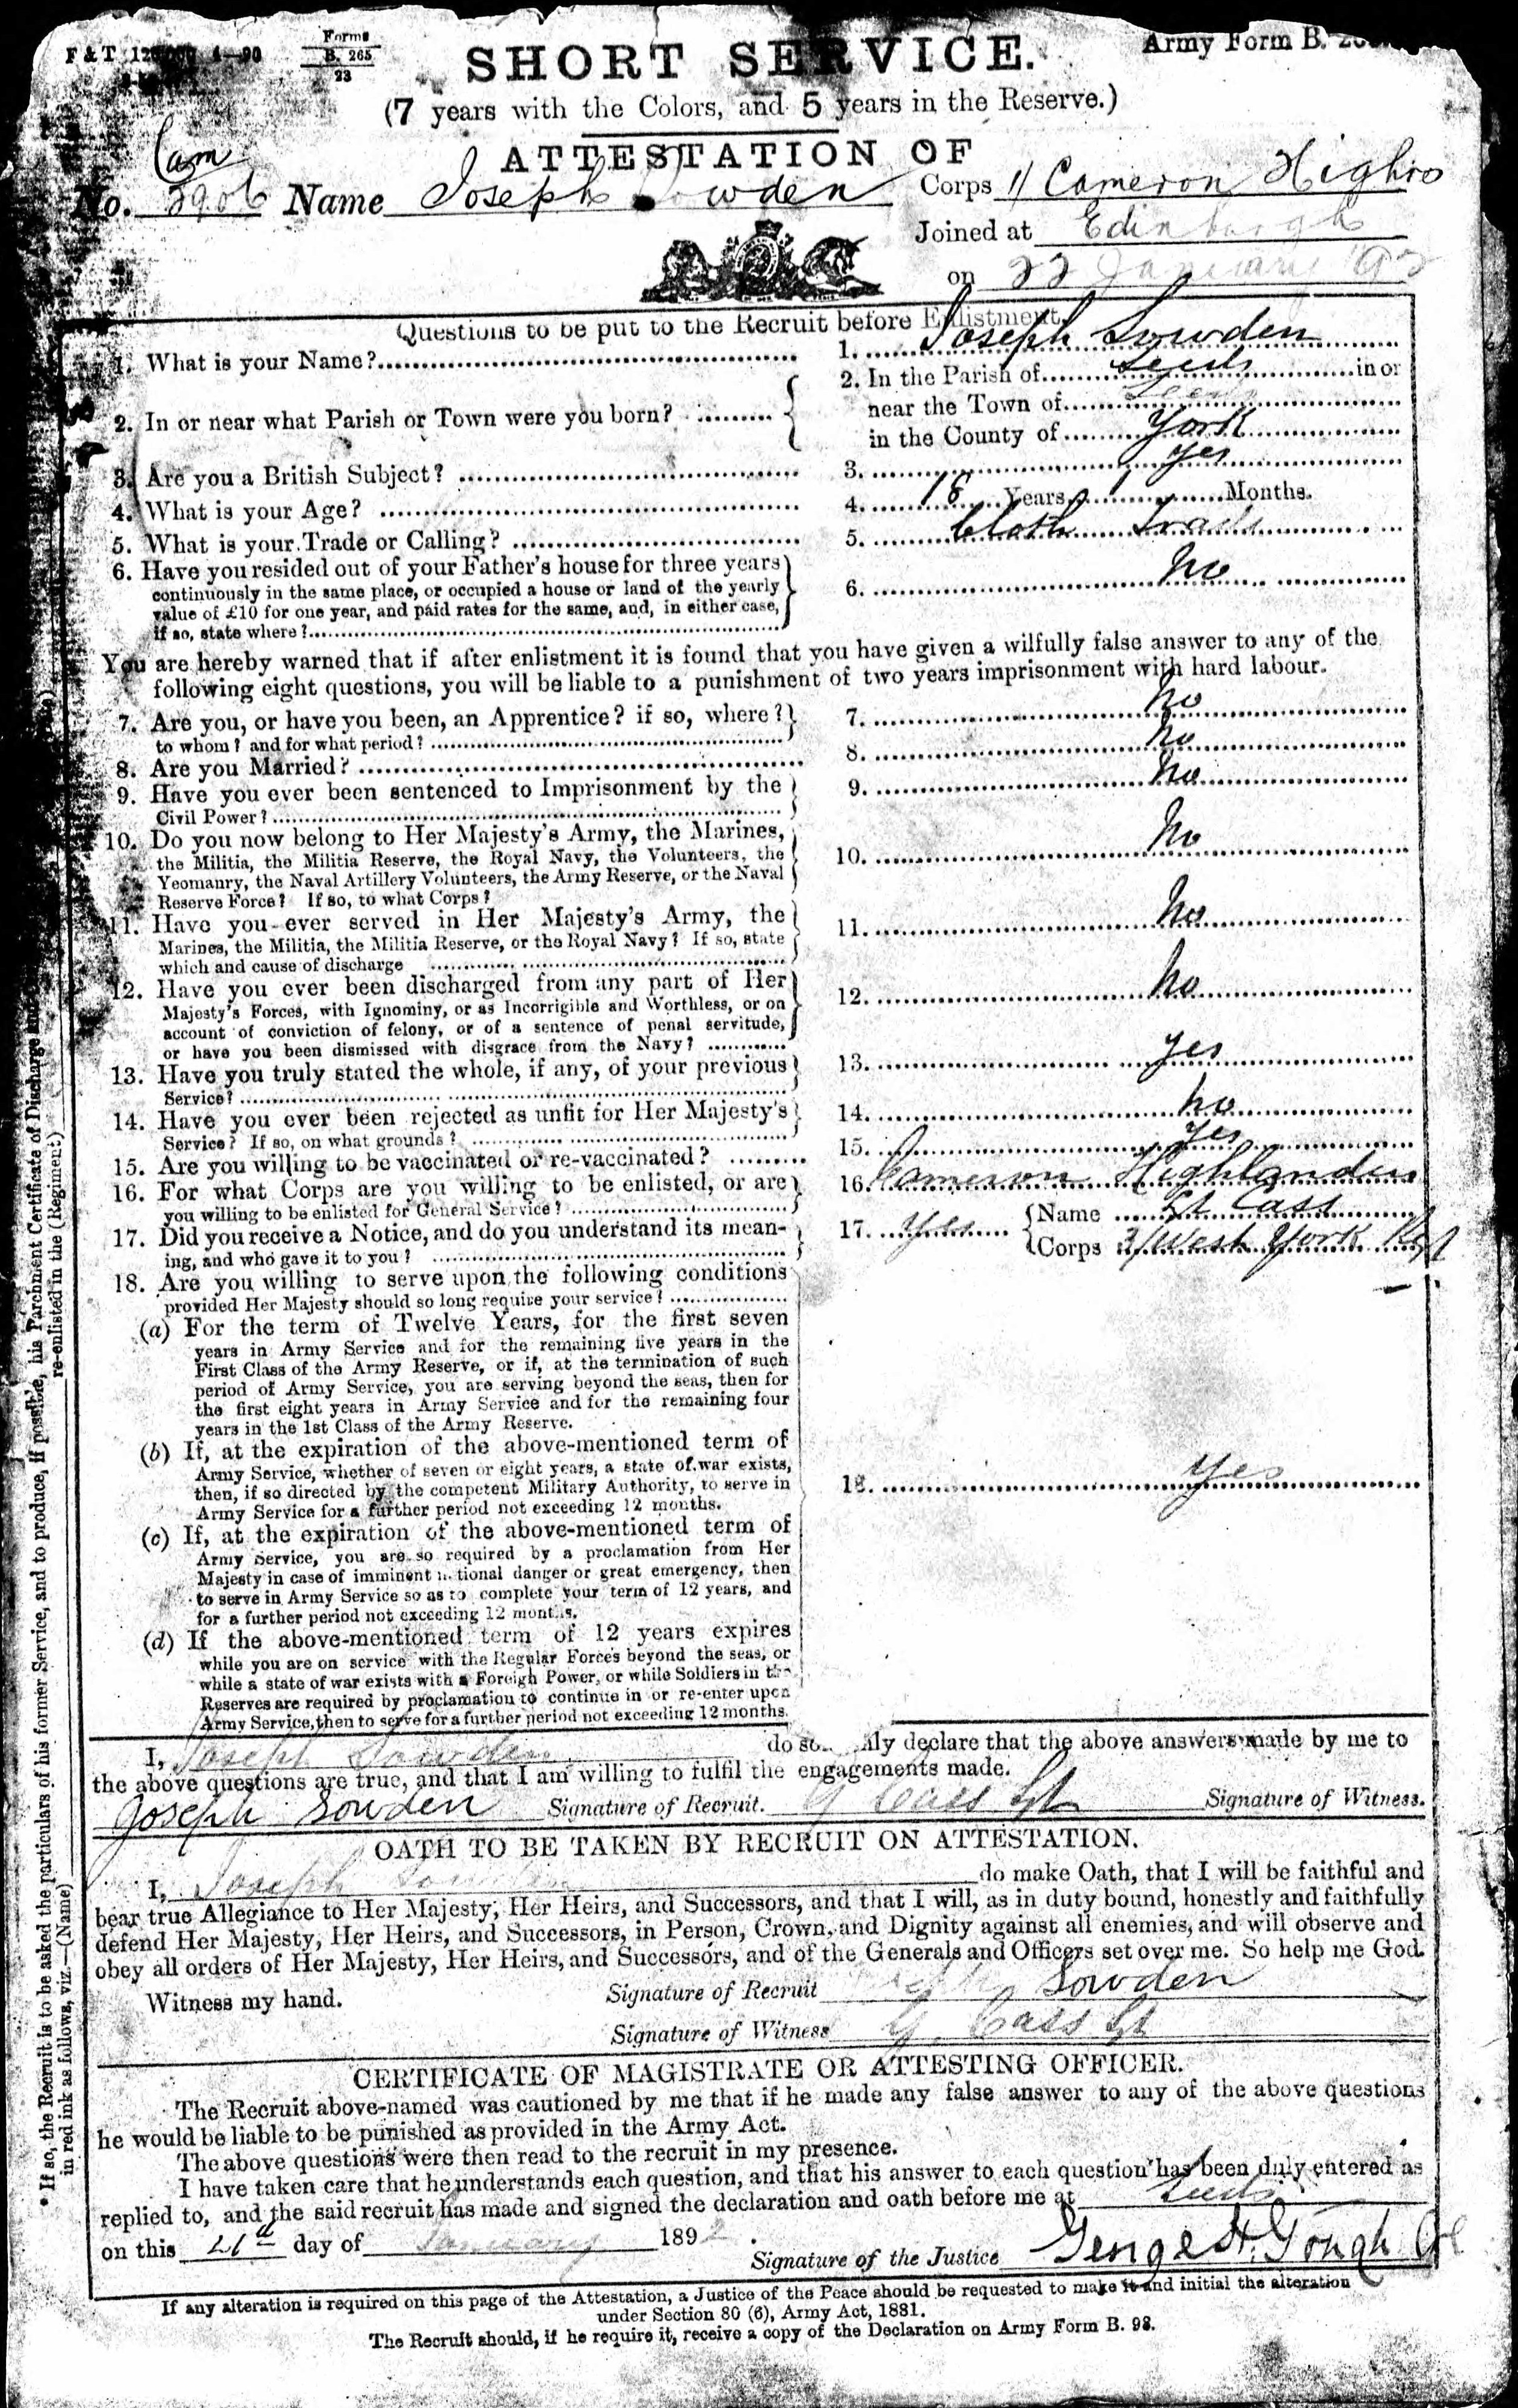 Forms
B. 265
23
F & T 4—90
SHORT SERVICE.
Army Form B.
(7 years with the Colors, and 5 years in the Reserve.)
ATTESTATION OF
Cam
No. 2906 Name Joseph Sowden Corps Cameron Highrs
Joined at Edinburgh
on 22 January '92
Questions to be put to the Recruit before Enlistment.
1. What is your Name? 1. Joseph Sowden
2. In or near what Parish or Town were you born? 2. In the Parish of Leeds in or
near the Town of Leeds
in the County of York
3. Are you a British Subject? 3. Yes
4. What is your Age? 4. 18 Years 1 Months.
5. What is your Trade or Calling? 5. Cloth
6. Have you resided out of your Father's house for three years
continuously in the same place, or occupied a house or land of the yearly 6. No
value of £10 for one year, and paid rates for the same, and, in either case,
if so, state where?
You are hereby warned that if after enlistment it is found that you have given a wilfully false answer to any of the
following eight questions, you will be liable to a punishment of two years imprisonment with hard labour.
7. Are you, or have you been, an Apprentice? if so, where? 7. No
to whom? and for what period?
8. Are you Married? 8. No
9. Have you ever been sentenced to Imprisonment by the 9. No
Civil Power?
10. Do you now belong to Her Majesty's Army, the Marines,
the Militia, the Militia Reserve, the Royal Navy, the Volunteers, the 10. No
Yeomanry, the Naval Artillery Volunteers, the Army Reserve, or the Naval
Reserve Force? If so, to what Corps?
11. Have you ever served in Her Majesty's Army, the 11. No
Marines, the Militia, the Militia Reserve, or the Royal Navy? If so, state
which and cause of discharge
12. Have you ever been discharged from any part of Her 12. No
Majesty's Forces, with Ignominy, or as Incorrigible and Worthless, or on
account of conviction of felony, or of a sentence of penal servitude,
or have you been dismissed with disgrace from the Navy?
13. Have you truly stated the whole, if any, of your previous 13. Yes
Service?
14. Have you ever been rejected as unfit for Her Majesty's 14. No
Service? If so, on what grounds?
15. Are you willing to be vaccinated or re-vaccinated? 15. Yes
16. For what Corps are you willing to be enlisted, or are 16. Cameron Highlanders
you willing to be enlisted for General Service?
17. Did you receive a Notice, and do you understand its mean- 17. Yes Name Sgt Cass
ing, and who gave it to you? Corps 3/West York Regt
18. Are you willing to serve upon the following conditions
provided Her Majesty should so long require your service?
(a) For the term of Twelve Years, for the first seven
years in Army Service and for the remaining five years in the
First Class of the Army Reserve, or if, at the termination of such
period of Army Service, you are serving beyond the seas, then for
the first eight years in Army Service and for the remaining four
years in the 1st Class of the Army Reserve.
(b) If, at the expiration of the above-mentioned term of
Army Service, whether of seven or eight years, a state of war exists,
then, if so directed by the competent Military Authority, to serve in 18. Yes
Army Service for a further period not exceeding 12 months.
(c) If, at the expiration of the above-mentioned term of
Army Service, you are so required by a proclamation from Her
Majesty in case of imminent national danger or great emergency, then
to serve in Army Service so as to complete your term of 12 years, and
for a further period not exceeding 12 months.
(d) If the above-mentioned term of 12 years expires
while you are on service with the Regular Forces beyond the seas, or
while a state of war exists with a Foreign Power, or while Soldiers in the
Reserves are required by proclamation to continue in or re-enter upon
Army Service, then to serve for a further period not exceeding 12 months.
I, Joseph Sowden do solemnly declare that the above answers made by me to
the above questions are true, and that I am willing to fulfil the engagements made.
Joseph Sowden Signature of Recruit. G Cass Sgt Signature of Witness.
OATH TO BE TAKEN BY RECRUIT ON ATTESTATION.
I, Joseph Sowden do make Oath, that I will be faithful and
bear true Allegiance to Her Majesty, Her Heirs, and Successors, and that I will, as in duty bound, honestly and faithfully
defend Her Majesty, Her Heirs, and Successors, in Person, Crown, and Dignity against all enemies, and will observe and
obey all orders of Her Majesty, Her Heirs, and Successors, and of the Generals and Officers set over me. So help me God.
Witness my hand. Signature of Recruit Joseph Sowden
Signature of Witness G Cass Sgt
CERTIFICATE OF MAGISTRATE OR ATTESTING OFFICER.
The Recruit above-named was cautioned by me that if he made any false answer to any of the above questions
he would be liable to be punished as provided in the Army Act.
The above questions were then read to the recruit in my presence.
I have taken care that he understands each question, and that his answer to each question has been duly entered as
replied to, and the said recruit has made and signed the declaration and oath before me at Leeds
on this 21st day of January 1892.
Signature of the Justice George H. Gough Col
If any alteration is required on this page of the Attestation, a Justice of the Peace should be requested to make it and initial the alteration
under Section 80 (6), Army Act, 1881.
The Recruit should, if he require it, receive a copy of the Declaration on Army Form B. 98.
* If so, the Recruit is to be asked the particulars of his former Service, and to produce, if possible, his Parchment Certificate of Discharge
in red ink as follows, viz.—(Name) re-enlisted in the (Regiment)